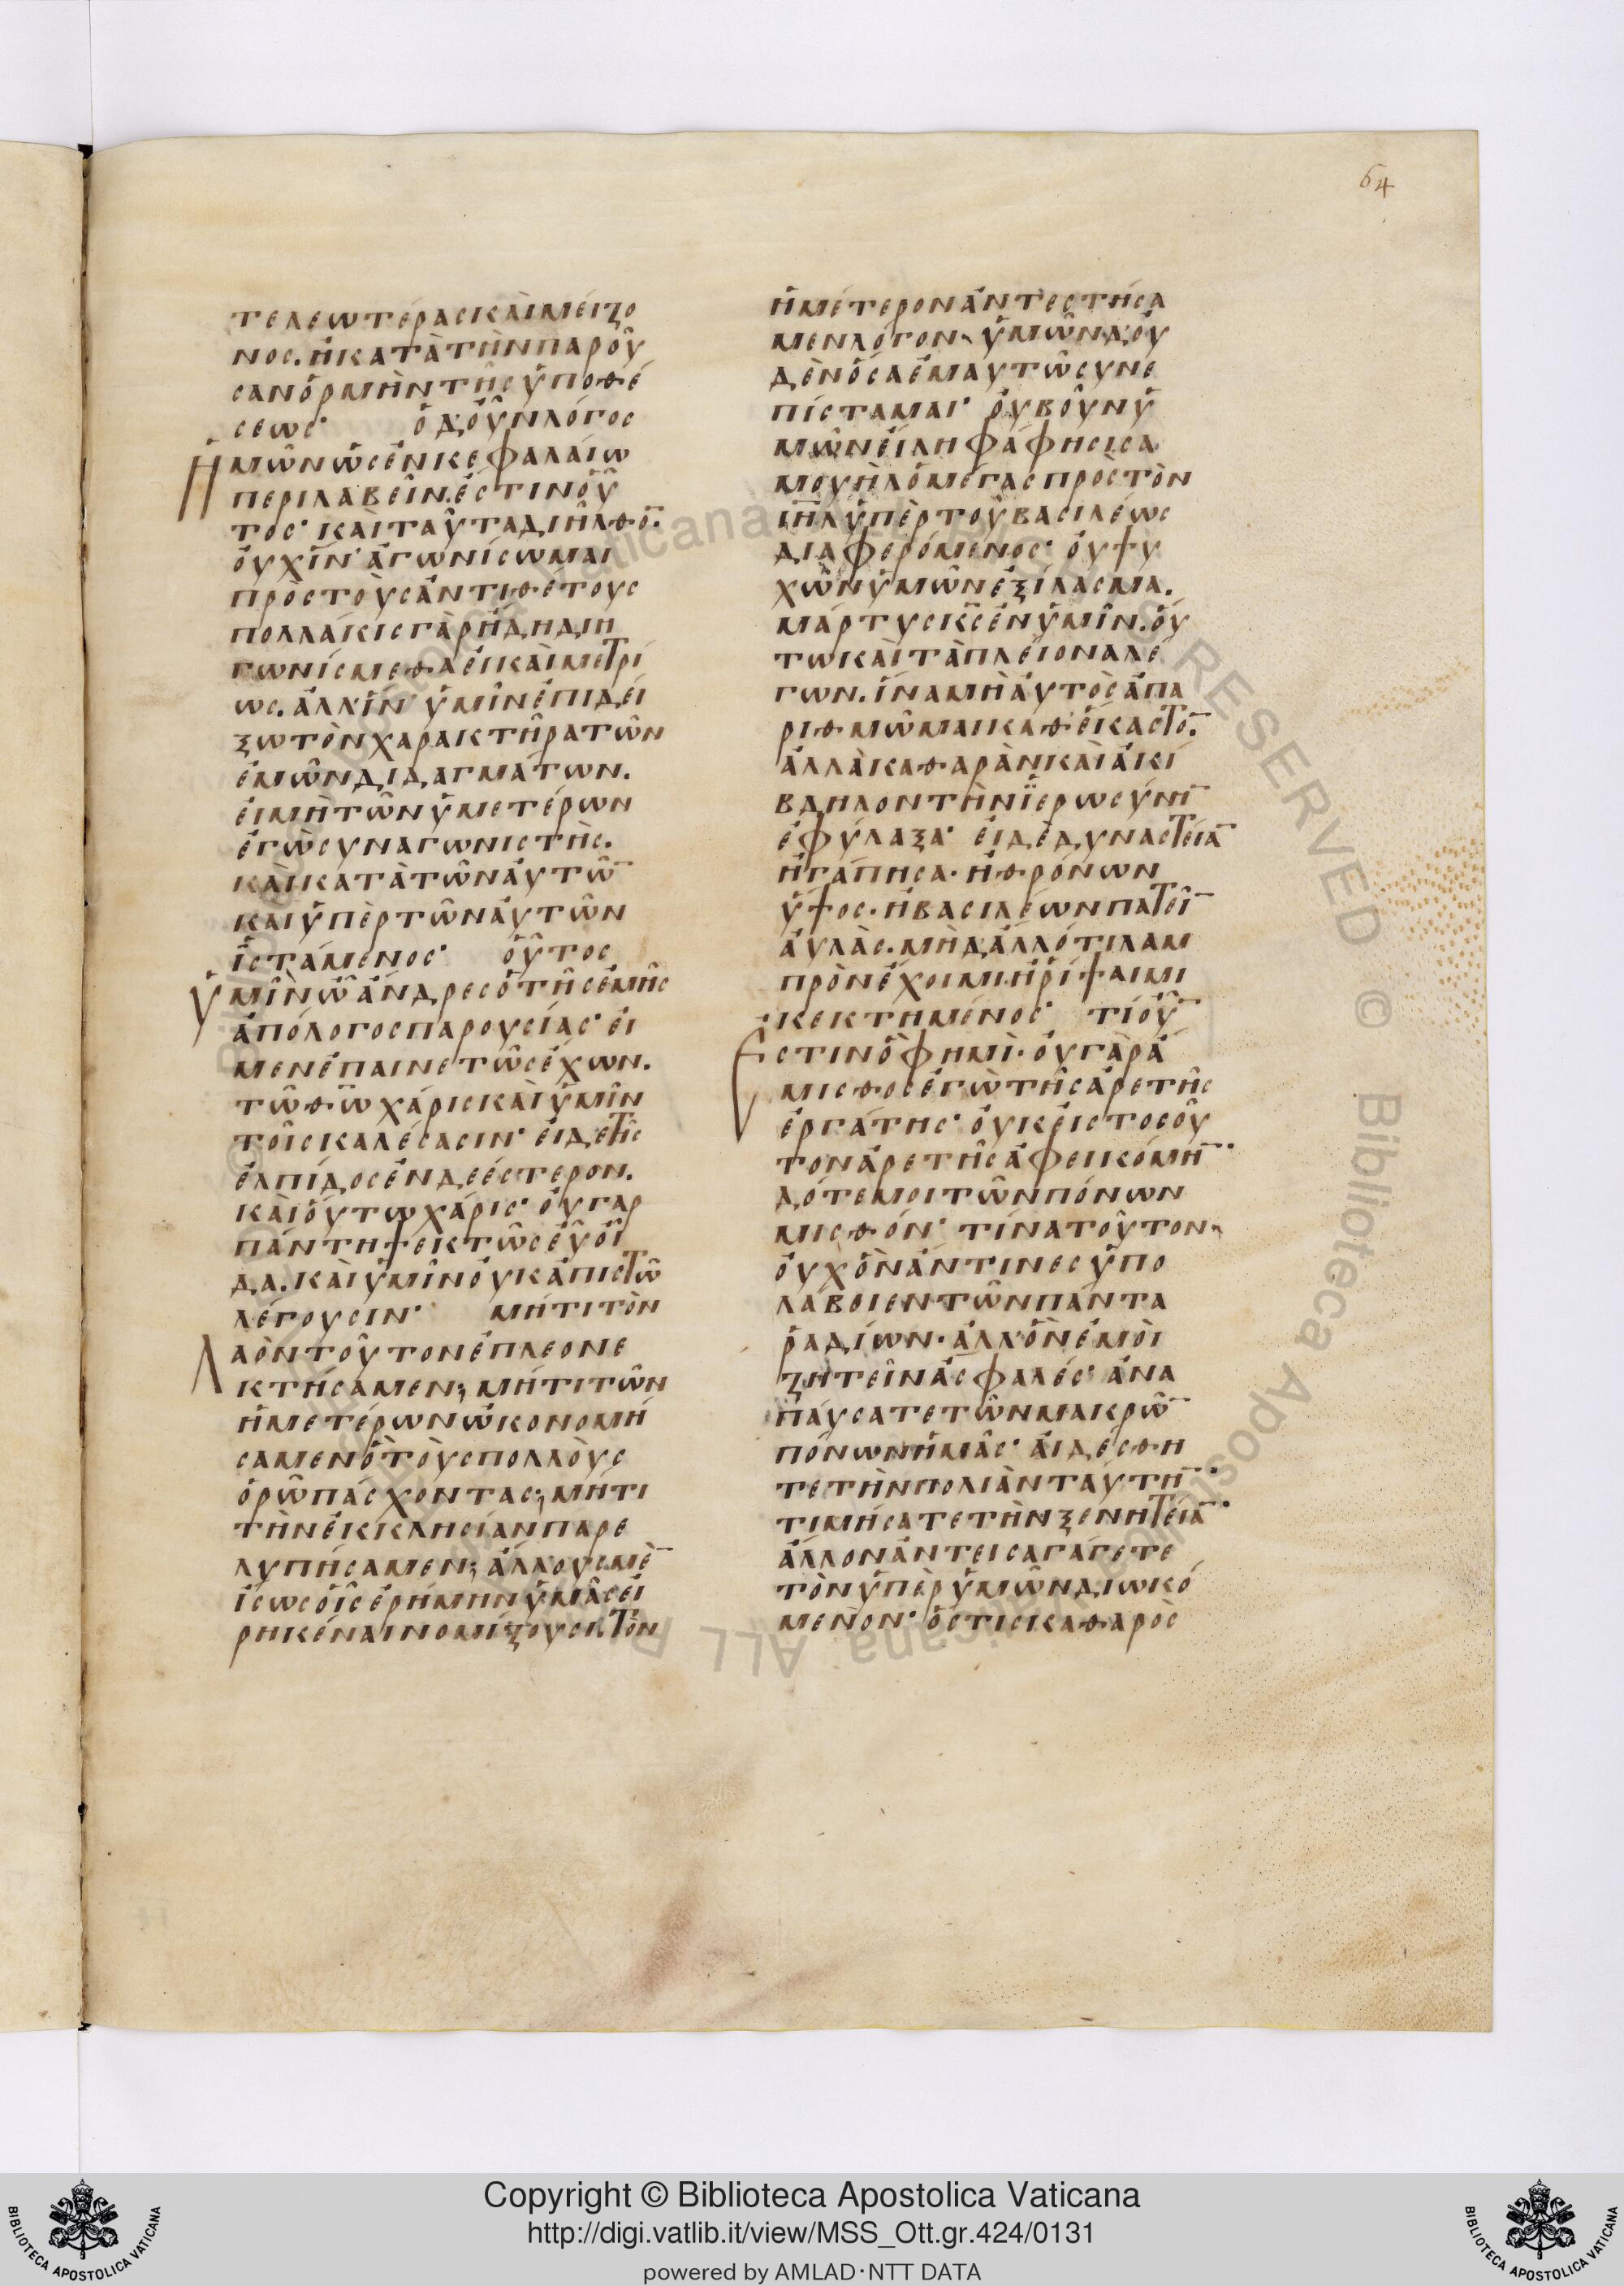 64
τελεωτέρας καὶ μείζο
νος. ἢ κατὰ τὴν παροῦ
σαν ὁρμὴν τῆς ὑποθέ
σεως· ὁ δ' οὖν λόγος
ἡμῶν ὡς ἐν κεφαλαίω
περιλαβεῖν. ἐστὶν οὗ
τος· καὶ ταῦτα διῆλθο̅.
οὐχ ἵν' ἀγωνίσωμαι
πρὸς τοὺς ἀντιθέτους
πολλάκις γὰρ ἤδη διη
γωνίσμεθα εἰ καὶ μετρί
ως. ἀλλ' ἵν' ὑμῖν ἐπιδεί
ξω τὸν χαρακτῆρα τῶν
ἐμῶν διδαγμάτων.
εἰ μὴ τῶν ὑμετέρων
ἐγὼ συναγωνιστὴς.
καὶ κατὰ τῶν αὐτῶ̅
καὶ ὑπὲρ τῶν αὐτῶν
ἱστάμενος· οὗτος
ὑμῖν ὦ ἄνδρες ὁ τῆς ἐμῆς
ἀπόλογος παρουσίας· εἰ
μὲν ἐπαινετῶς ἔχων.
τῶ θ̅ω̅ χάρις καὶ ὑμῖν
τοῖς καλέσασιν· εἰ δὲ τῆς
ἐλπίδος ἐνδεέστερον.
καὶ οὕτω χάρις· οὐ γαρ
πάντη ψεκτῶς εὖ οἶ
δα. καὶ ὑμῖν οὐκ ἀπιστῶ
λέγουσιν· μήτι τὸν
λαὸν τοῦτον ἐπλεονε
κτήσαμεν; μήτι τῶν
ἡμετέρων ὠκονομή
σαμεν ὃ τοὺς πολλοὺς
ὁρῶ πάσχοντας; μήτι
τὴν ἐκκλησίαν παρε
λυπήσαμεν; ἄλλους μὲ̅
ἴσως οἷς ἐρήμην ὑμᾶς εἰ
ρηκέναι νομίζουσι τὸν
ἡμέτερον ἀντεστήσα
μεν λόγον· ὑμῶν δ' οὐ
δὲν ὅσα ἐμαυτῶ συνε
πίσταμαι· οὐ βοῦν ὑ
μῶν εἴληφά φησι σα
μουὴλ ὁ μέγας πρὸς τὸν
ι̅η̅λ̅ ὑπὲρ τοῦ βασιλέως
διαφερόμενος· οὐ ψυ
χῶν ὑμῶν ἐξίλασμα.
μάρτυς κ̅ς̅ ἐν ὑμῖν. οὐ
τω καὶ τὰ πλείονα λέ
γων. ἵνα μὴ αὐτὸς ἀπα
ριθμῶμαι καθ' ἕκαστο̅.
ἀλλὰ καθαρὰν καὶ ἀκί
βδηλον τὴν ἱερωσύνη̅
ἐφύλαξα· εἰ δὲ δυναστεία̅
ἠγάπησα. ἢ θρόνων
ὕψος. ἢ βασιλέων πατεῖ̅
αὐλὰς. μὴδ' ἄλλό τι λαμ
πρὸν ἔχοιμι ἢ ῥίψαιμι
κεκτημένος· τί οὖ̅
ἐστὶν ὅ φημὶ. οὐ γὰρ ἄ
μισθος ἐγὼ τῆς ἀρετῆς
ἐργάτης· οὐκ εἰς τοσοῦ
τον ἀρετῆς ἀφεικόμη̅·
δότε μοι τῶν πόνων
μισθόν· τίνα τοῦτον·
οὐχ ὃν ἄν τινες ὑπο
λάβοιεν τῶν πάντα
ῥαδίων. ἀλλ' ὃν ἐμοὶ
ζητεῖν ἀσφαλές· ἀνα
παύσατε τῶν μακρῶ̅
πόνων ἡμᾶς· αἰδέσθη
τε τὴν πολιὰν ταύτη̅·
τιμήσατε τὴν ξενητεία̅·
ἄλλον ἀντεισαγάγετε
τὸν ὑπὲρ ὑμῶν διωκό
μενὸν· ὅστις καθαρὸς
Copyright © Biblioteca Apostolica Vaticana
http://digi.vatlib.it/view/MSS_Ott.gr.424/0131
powered by AMLAD·NTT DATA